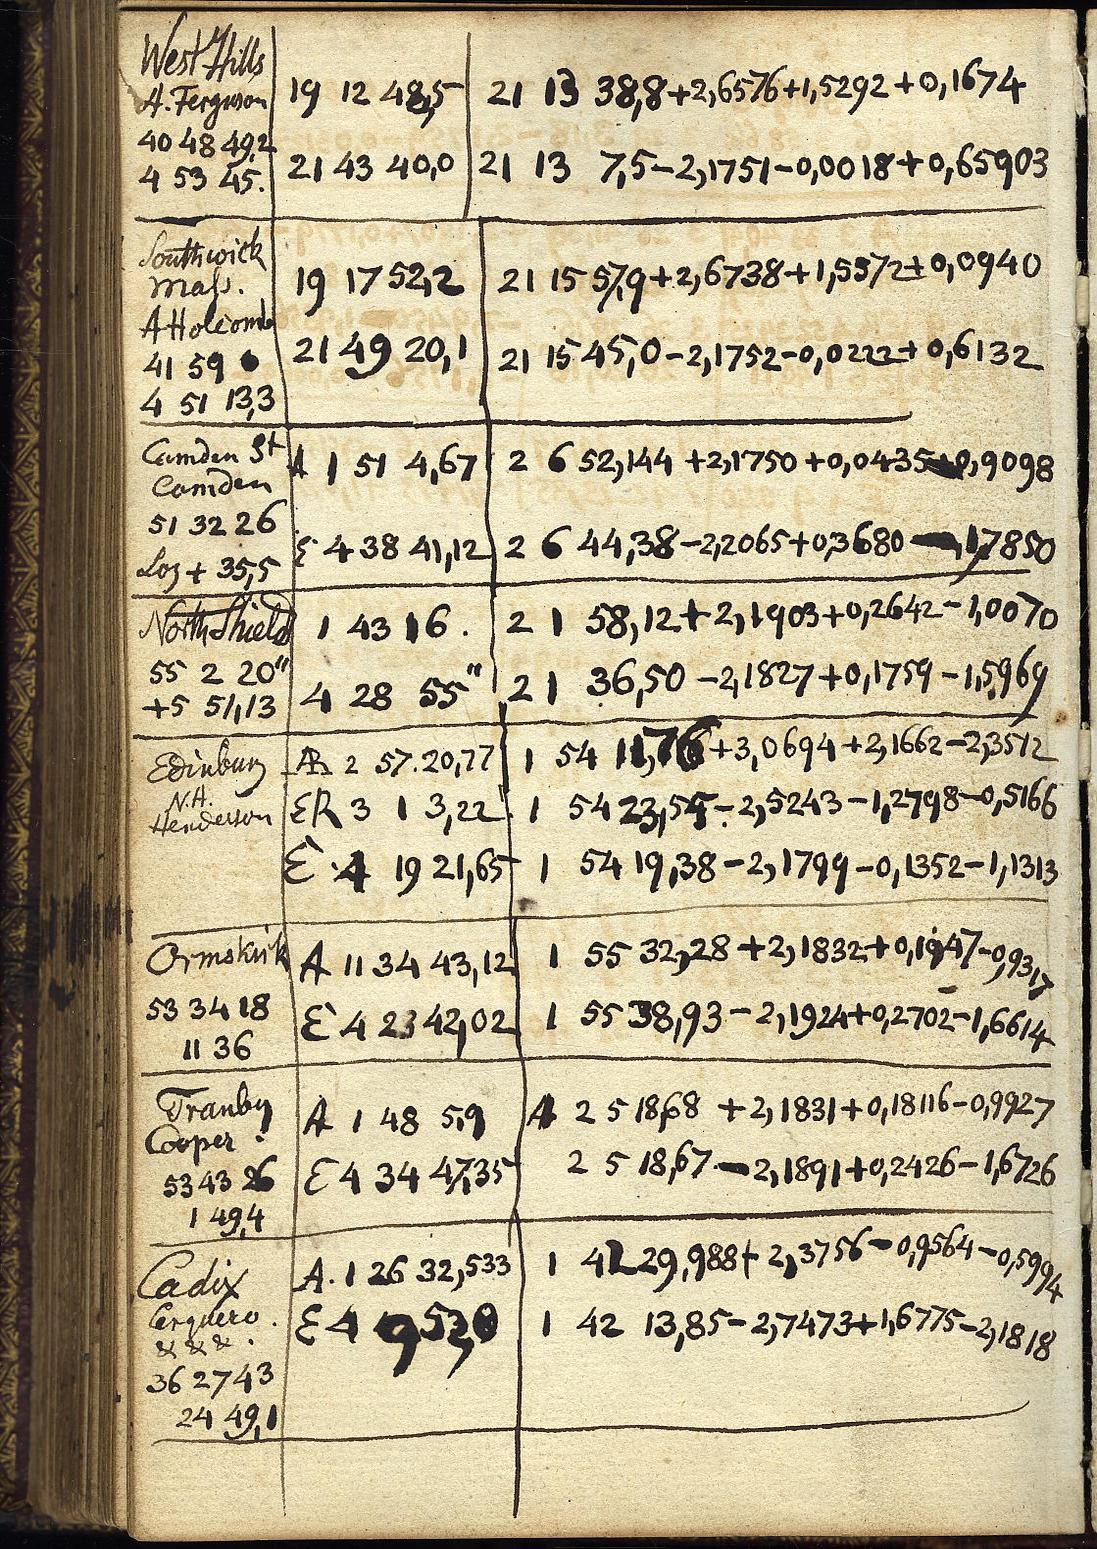 West Hills
A. Ferguson 19 12 48,5 21 13 38,8+2,6576+1,5292+0,1674
40 48 49,2
4 53 45. 21 43 40,0 21 13 7,5-2,1751-0,0018+0,65903
Southwick
Mass. 19 17 52,2 21 15 57,9+2,6738+1,5572+0,0940
A Holcomb
41 59 21 49 20,1 21 15 45,0-2,1752-0,0222+0,6132
4 51 13,3
Camden St A 1 51 4,67 2 6 52,144 +2,1750+0,0435 0,9098
Camden
51 32 26
Log + 35,5 E 4 38 41,12 2 6 44,38-2,2065+0,3680-1,7850
North Shield 1 43 16. 2 1 58,12+2,1903+0,2642-1,0070
55 2 20"
+5 51,13 4 28 55" 2 1 36,50-2,1827+0,1759-1,5969
Edinburg AR 2 57.20,77 1 54 11,76+3,0694+2,1662-2,3512
N.H.
Henderson ER 3 1 3,22 1 54 23,54-2,5243-1,2798-0,5166
E 4 19 21,65 1 54 19,38-2,1799-0,1352-1,1313
Ormskirk A 11 34 43,12 1 55 32,28+2,1832+0,1947-0,9317
53 34 18 E 4 23 42,02 1 55 38,93-2,1924+0,2702-1,6614
11 36
Tranby A 1 48 5,9 A 2 5 18,68 +2,1831+0,18116-0,9927
Cooper.
53 43 26 E 4 34 47,35 2 5 18,67-2,1891+0,2426-1,6726
1 49,4
Cadix A. 1 26 32,533 1 42 29,988+2,3756-0,9564-0,5994
Cerquero. E 4 9 53,0 1 42 13,85-2,7473+1,6775-2,1818
& & &.
36 27 43
24 49,1